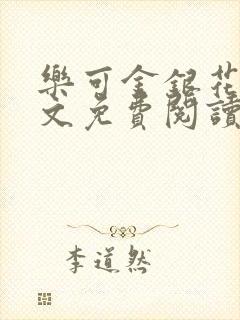 樂可金銀花
文免費閱讀
李道然